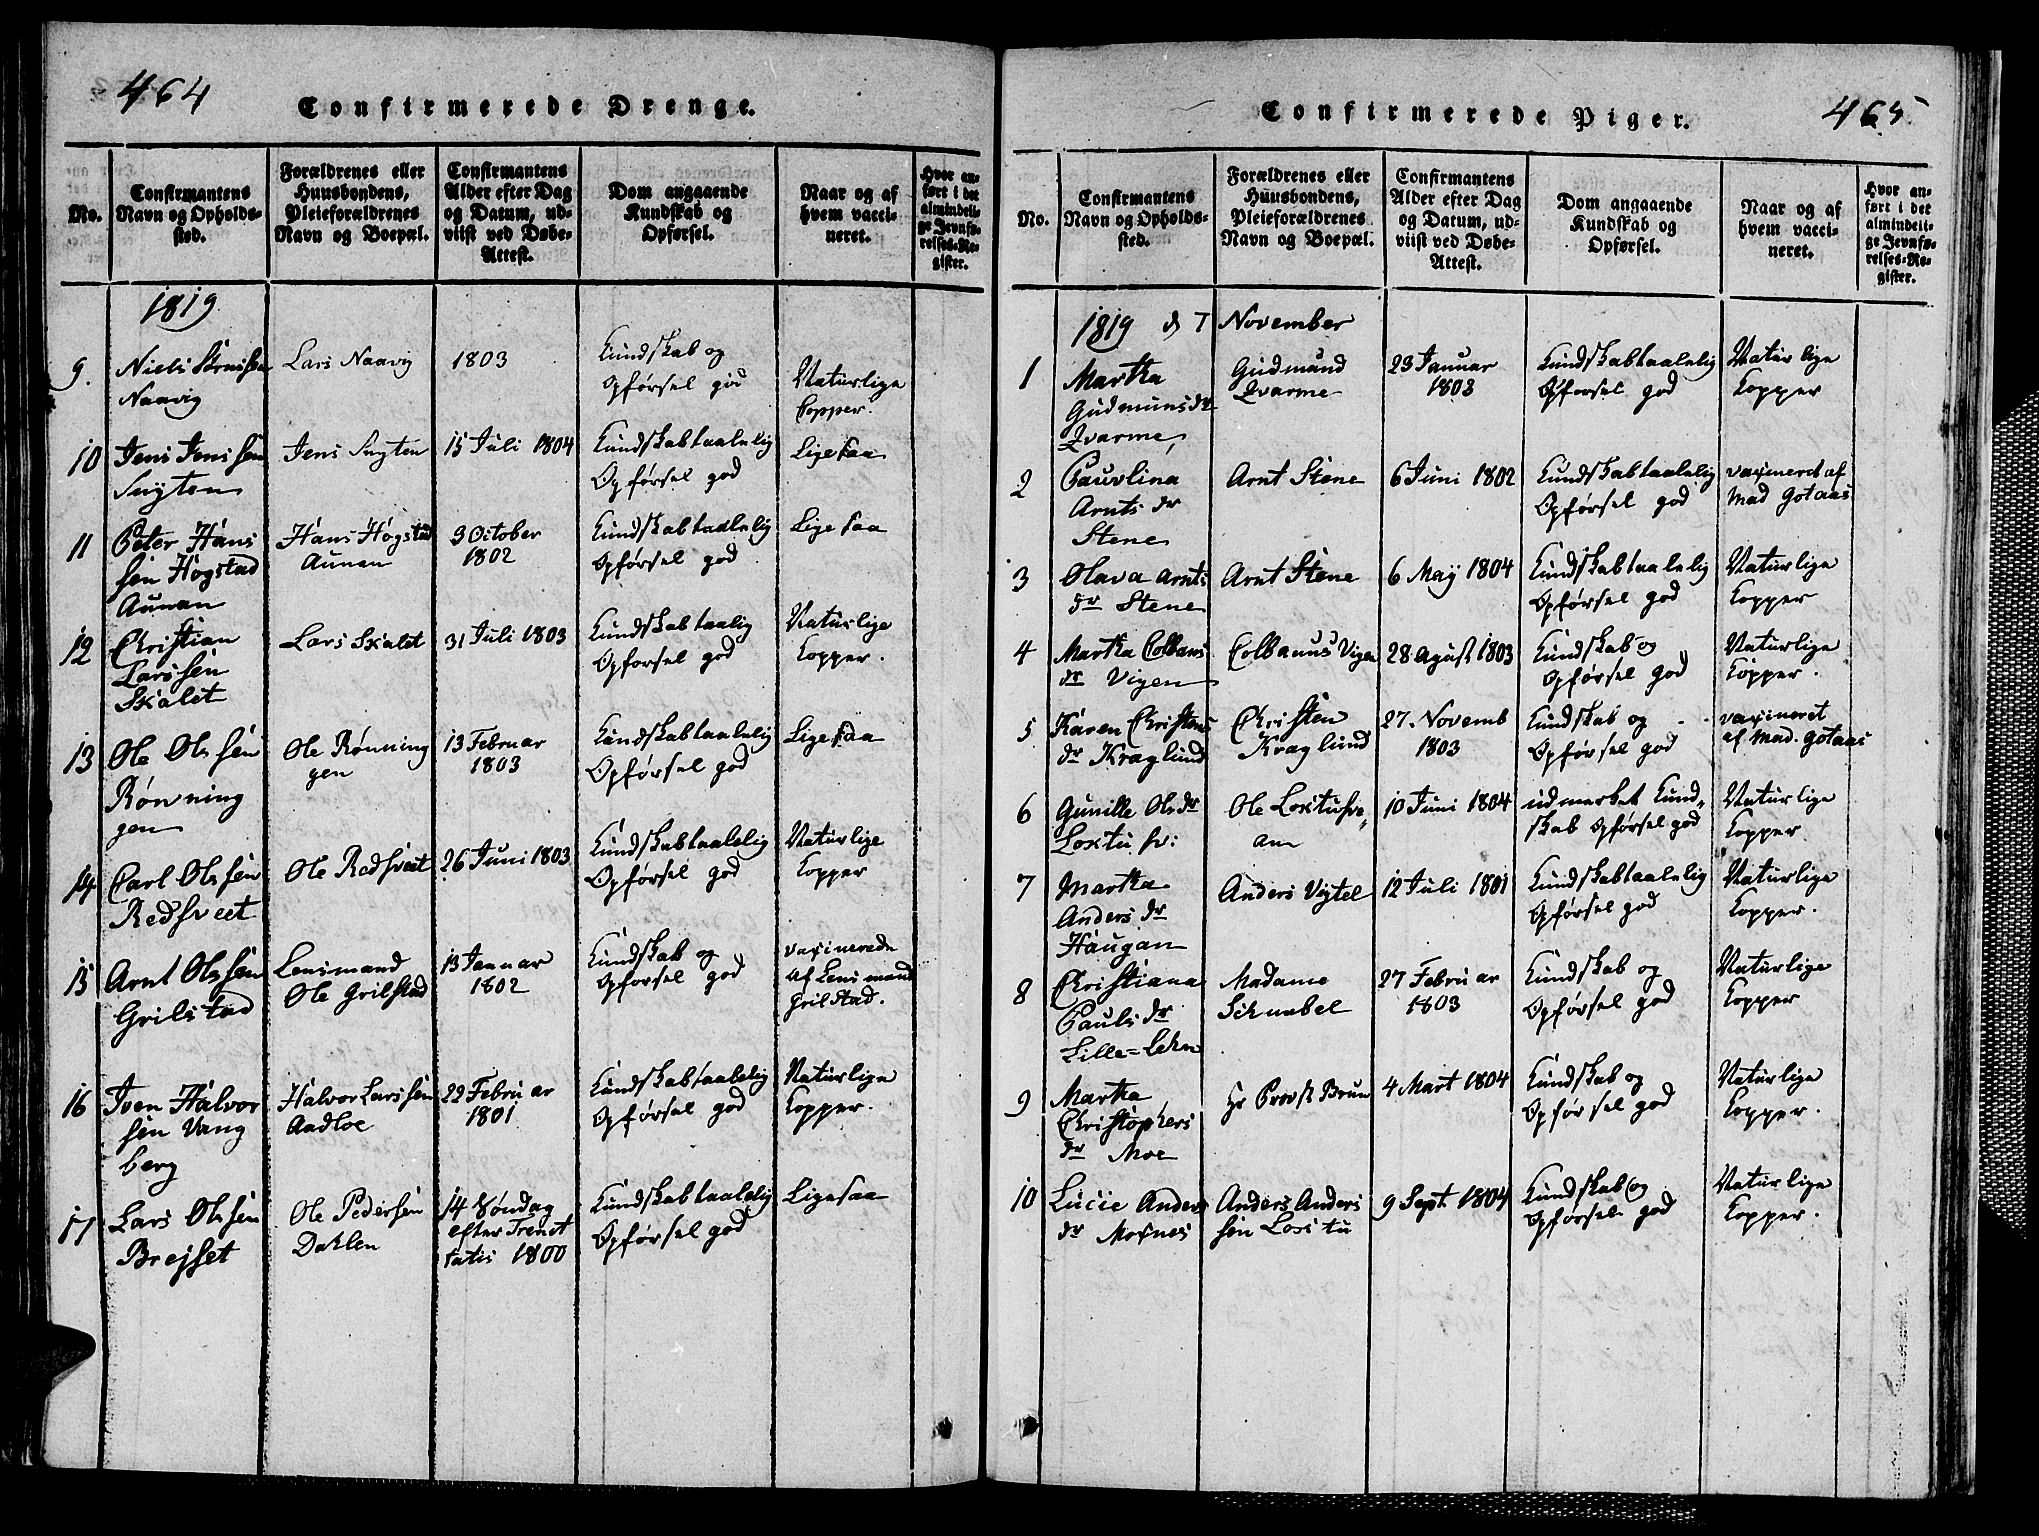 464
Confirmerede Drenge.
No.
Confirmantens
Navn og Opholds-
sted.
Forældrenes eller
Huusbondens,
Pleieforældrenes
Navn og Boepæl.
Confirmantens
Alder efter Dag
og Datum, ud-
viist ved Døbe-
Attest.
Dom angaaende
Kundskab og
Opførsel.
Naar og af
hvem vacci-
neret.
Hvor an-
ført i det
almindeli-
ge Jevnfø-
relses-Re-
gister.
1819
9.
Niels
Naavig
Lars Naavig
1803
Kundskab og
Opførsel god
Naturlige
Copper.
10
Jens Jens sen
Snyten
Jens Snyten
15 Juli 1804
Kundskab taalelig
Opførsel god
Lige saa
11
Peter Hans
sen Hogstad
Aunan
Hans Hogstad
Aunan
9 October
1802
Kundskab taalelig
Opførsel god
Lige saa
12
Christian
Lars sen
Skalet
Lars Skalet
31 Juli 1803
Kundskab taalig
Opførsel god
Naturlige
Kopper.
13
Ole Ols sen
Rønning
gen
Ole Rønning
gen
13 Februar
1803
Kundskab taalelig
Opførsel god
Lige saa
14
Carl Ols sen
Redsveet
Ole Redsveet
26 Juni 1803
Kundskab taalelig
Opførsel god
Naturlige
Kopper
15
Arnt Ols sen
Grilstad
Lensmand
Ole Grilstad
13 Januar
1802
Kundskab og
Opførsel god
vaxinerede
af Lensmand
Grilstad.
16
Iven Halvor
sen Vang
berg
Halvor Lars sen
Aadloe
22 Februar
1801
Kundskab taalelig
Opførsel god
Naturlige
Kopper.
17
Lars Ols sen
Brejset
Ole Pedersen
Dahlen
14 Søndag
efter Trenet
tatis 1800
Kundskab taalelig
Opførsel god
Lige saa
465
Confirmerede Piger.
No.
Confirmantens
Navn og Opholds-
sted.
Forældrenes eller
Huusbondens,
Pleieforældrenes
Navn og Boepæl.
Confirmantens
Alder efter Dag
og Datum, ud-
viist ved Døbe-
Attest.
Dom angaaende
Kundskab og
Opførsel.
Naar og af
hvem vacci-
neret.
Hvor an-
ført i det
almindeli-
ge Jevnfø-
relses-Re-
gister.
1819 d 7 November
1
Martha
Gudmunds dr
Qvarme,
Gudmund
Qvarme
23 Januar
1803
Kundskab taalelig
Opførsel god
Naturlige
Kopper
2
Pauvlina
Arnts dr
Stene
Arnt Stene
6 Juni 1802
Kundskab taalelig
Opførsel god
vaxineret af
Mad Gotaas
3
Olava Arnts
dr Stene
Arnt Stene
6 May 1804
Kundskab taalelig
Opførsel god
Naturlige
Kopper
4
Martha Colbans
dr Vigen
Colbanus Vigen
28 Agust 1803
Kundskab og
Opførsel god
Naturlige
Kopper.
5
Karen Christens
dr Kraglund
Christen
Kraglund
27. Novemb
1803
Kundskab og
Opførsel god
vaxineret
af Mad. Gotaas
6
Gunille Ols dr
Loxtu
Ole
10 Juni 1804
udmærket Kund-
skab Opførsel god
Naturlige
Kopper
7
Martha
Anders dr
Haugan
Anders Vigtel
12 Juli 1801
Kundskab taalelig
Opførsel god
Naturlige
Kopper.
8
Christiana
Pauls dr
Lille=
Madame
Schnabel
27 Februar
1803
Kundskab og
Opførsel god
Naturlige
Kopper
9
Martha
Christophers
dr Moe
Hr Provst Brun
4 Mart 1804
Kundskab og
Opførsel god
Naturlige
Kopper.
10
Lucie Anders
dr Moxnes
Anders Anders
sen Loxtu
9 Sept 1804
Kundskab og
Opførsel god
Naturlige
Kopper.